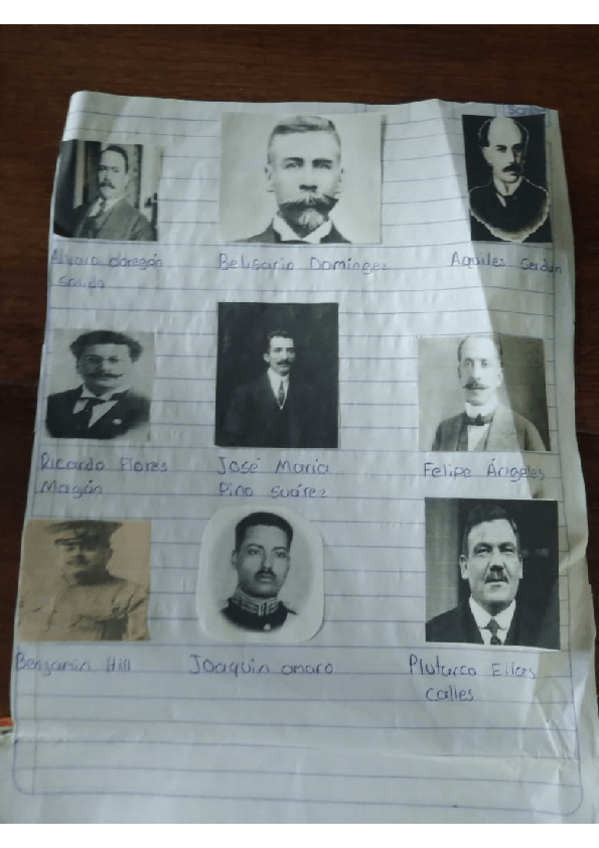 Alvaro obregón
Salido
Belisario Domíngez
Aquiles Serdan
Ricardo Flores
Magón
José María
Pino Suárez
Felipe Ángeles
Benjamín Hill
Joaquin amaro
Plutarco Elias
Calles